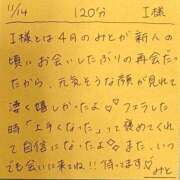 11/14 120分 I様
I様とは4月のみとが新人の
頃にお会いしたぶりの再会だっ
たから、元気そうな顔が見れて
凄く嬉しかったよ♡♡フェラした
時「上手くなった」って褒めてくれ
て自信になったよ◇また、いつ
でも会いに来てね!!待ってます♡
みと